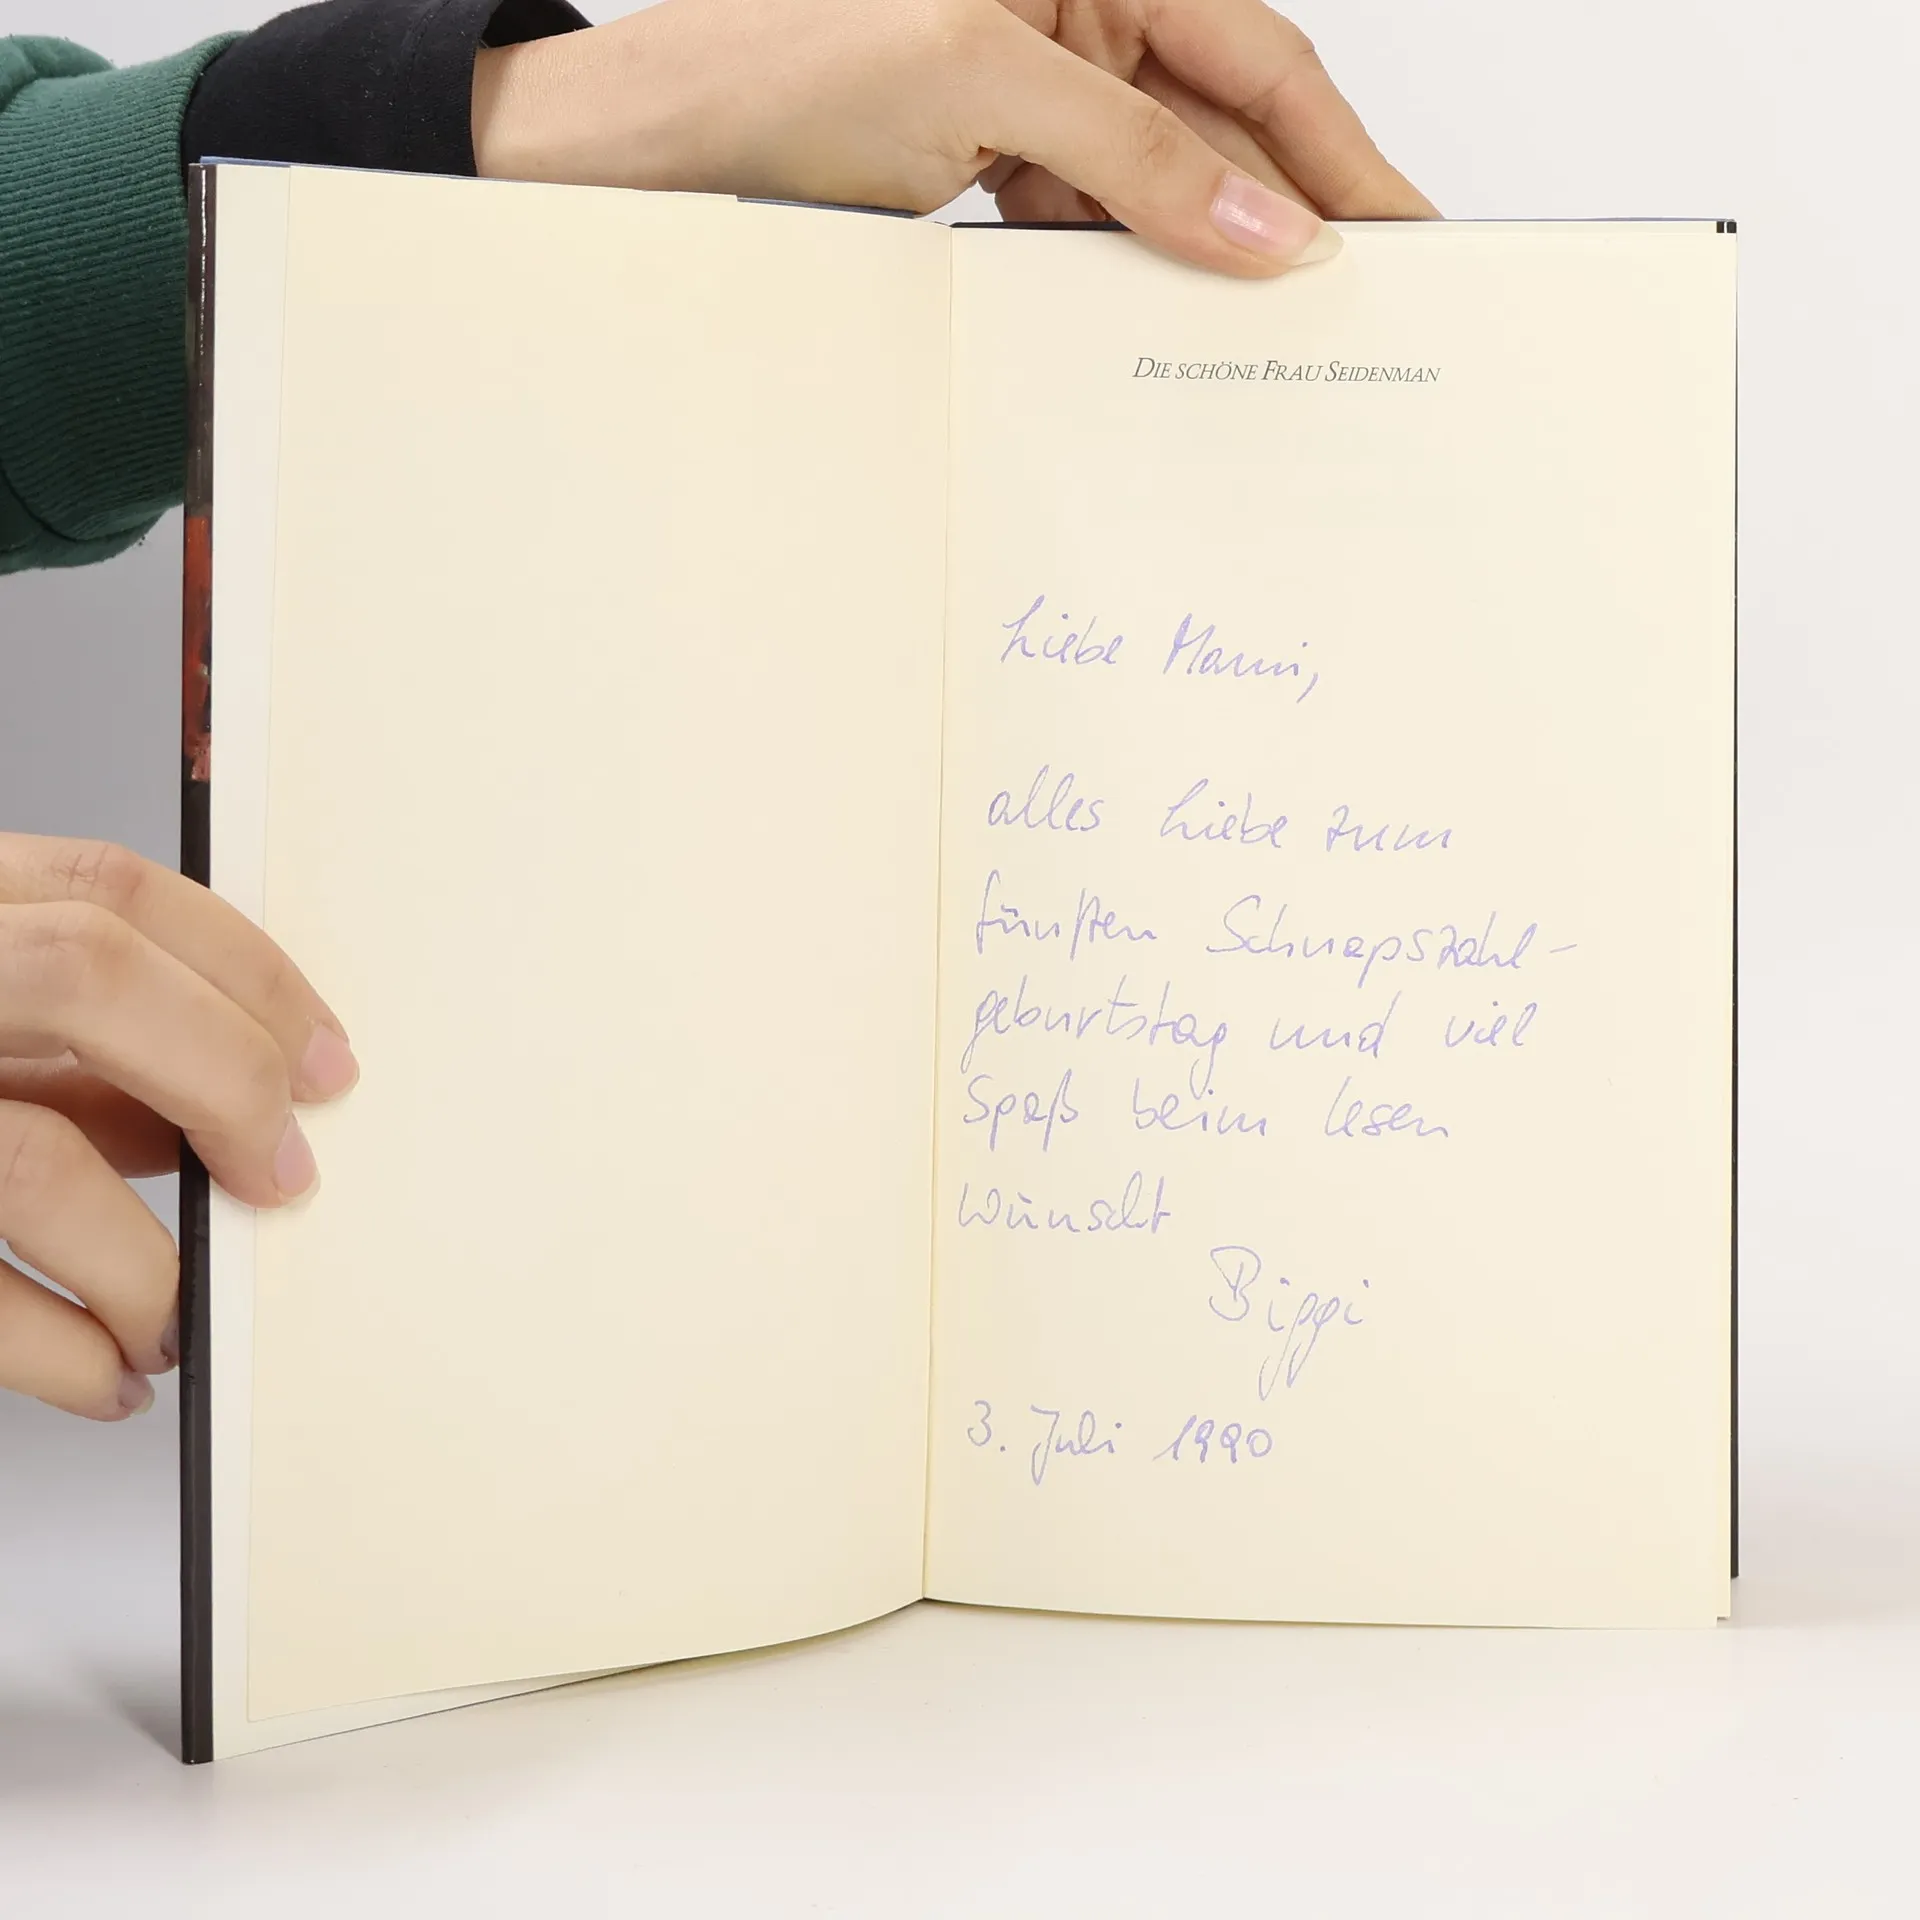 DIE SCHÖNE FRAU SEIDENMAN
Liebe Manni,
alles Liebe zum
fünften Schnapszahl-
geburtstag und viel
Spaß beim lesen
wünscht
Biggi
3. Juli 1990